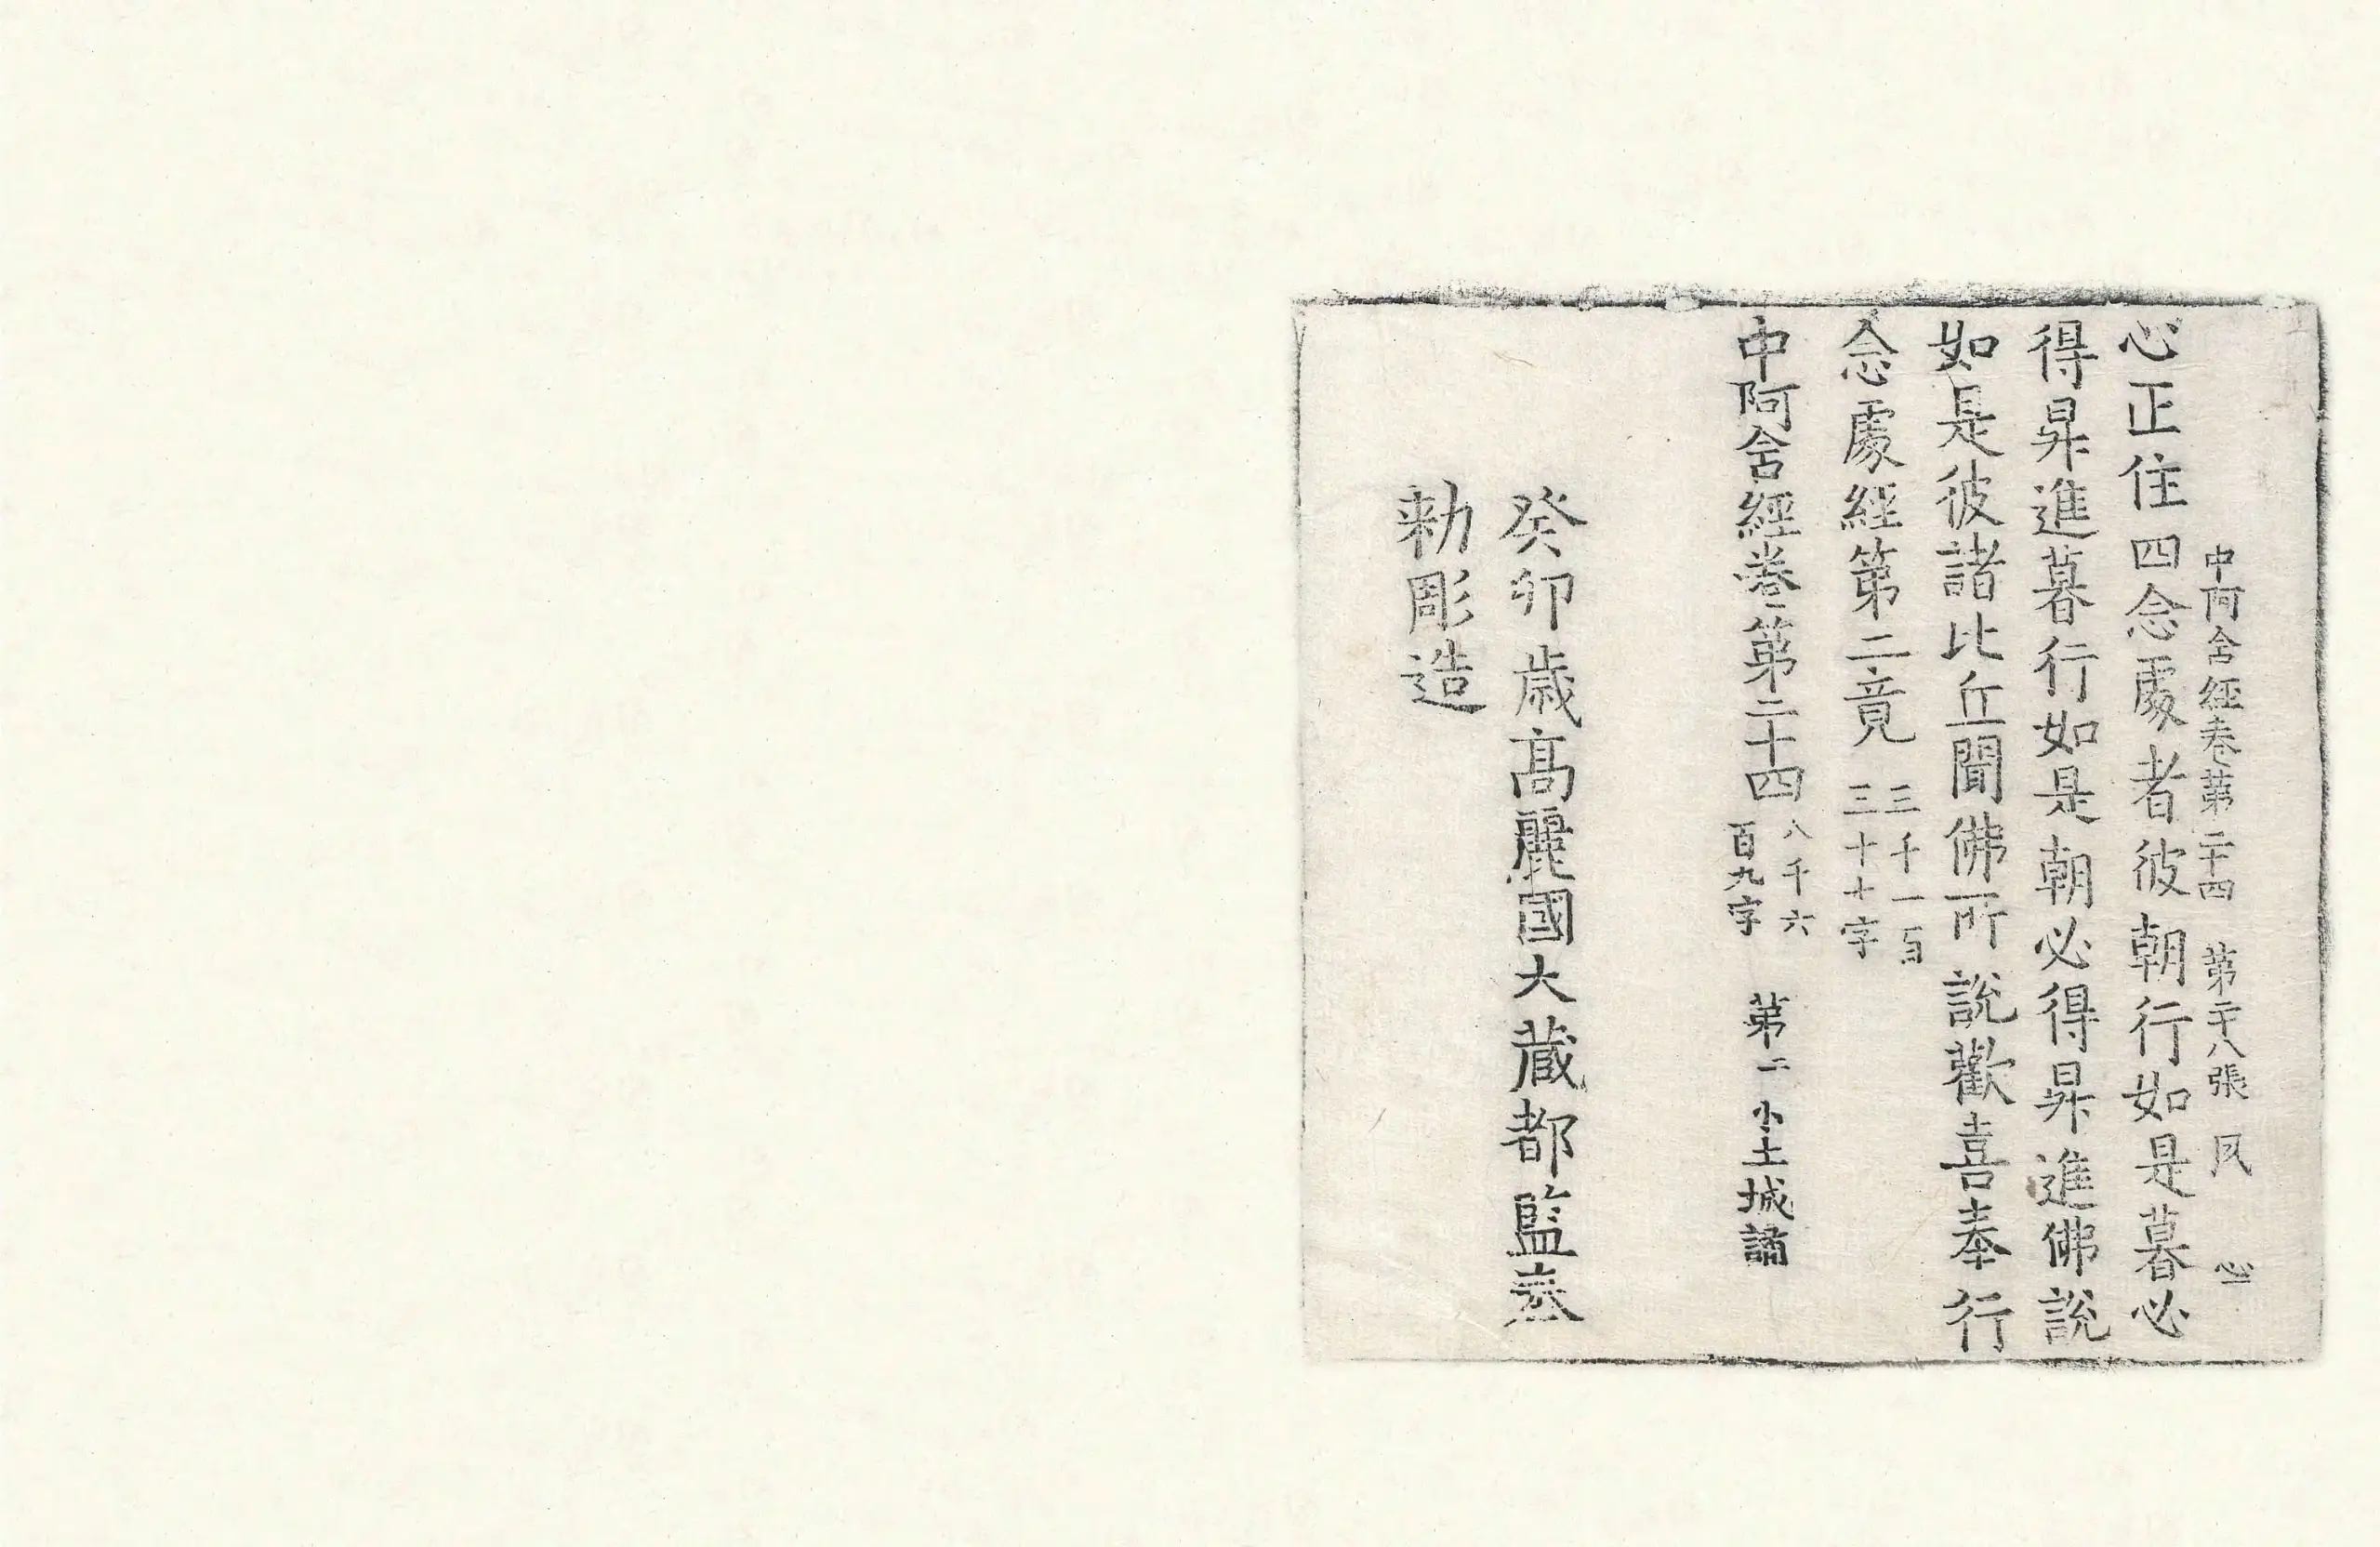 中阿含經卷第二十四 第二十八張 凤 心
心正住四念處者彼朝行如是暮必
得昇進暮行如是朝必得昇進佛說
如是彼諸比丘聞佛所說歡喜奉行
念處經第二竟 三千一百三十七字
中阿含經卷第二十四 八千六百九字 第二小土城誦
癸卯歲高麗國大藏都監奉
勑彫造